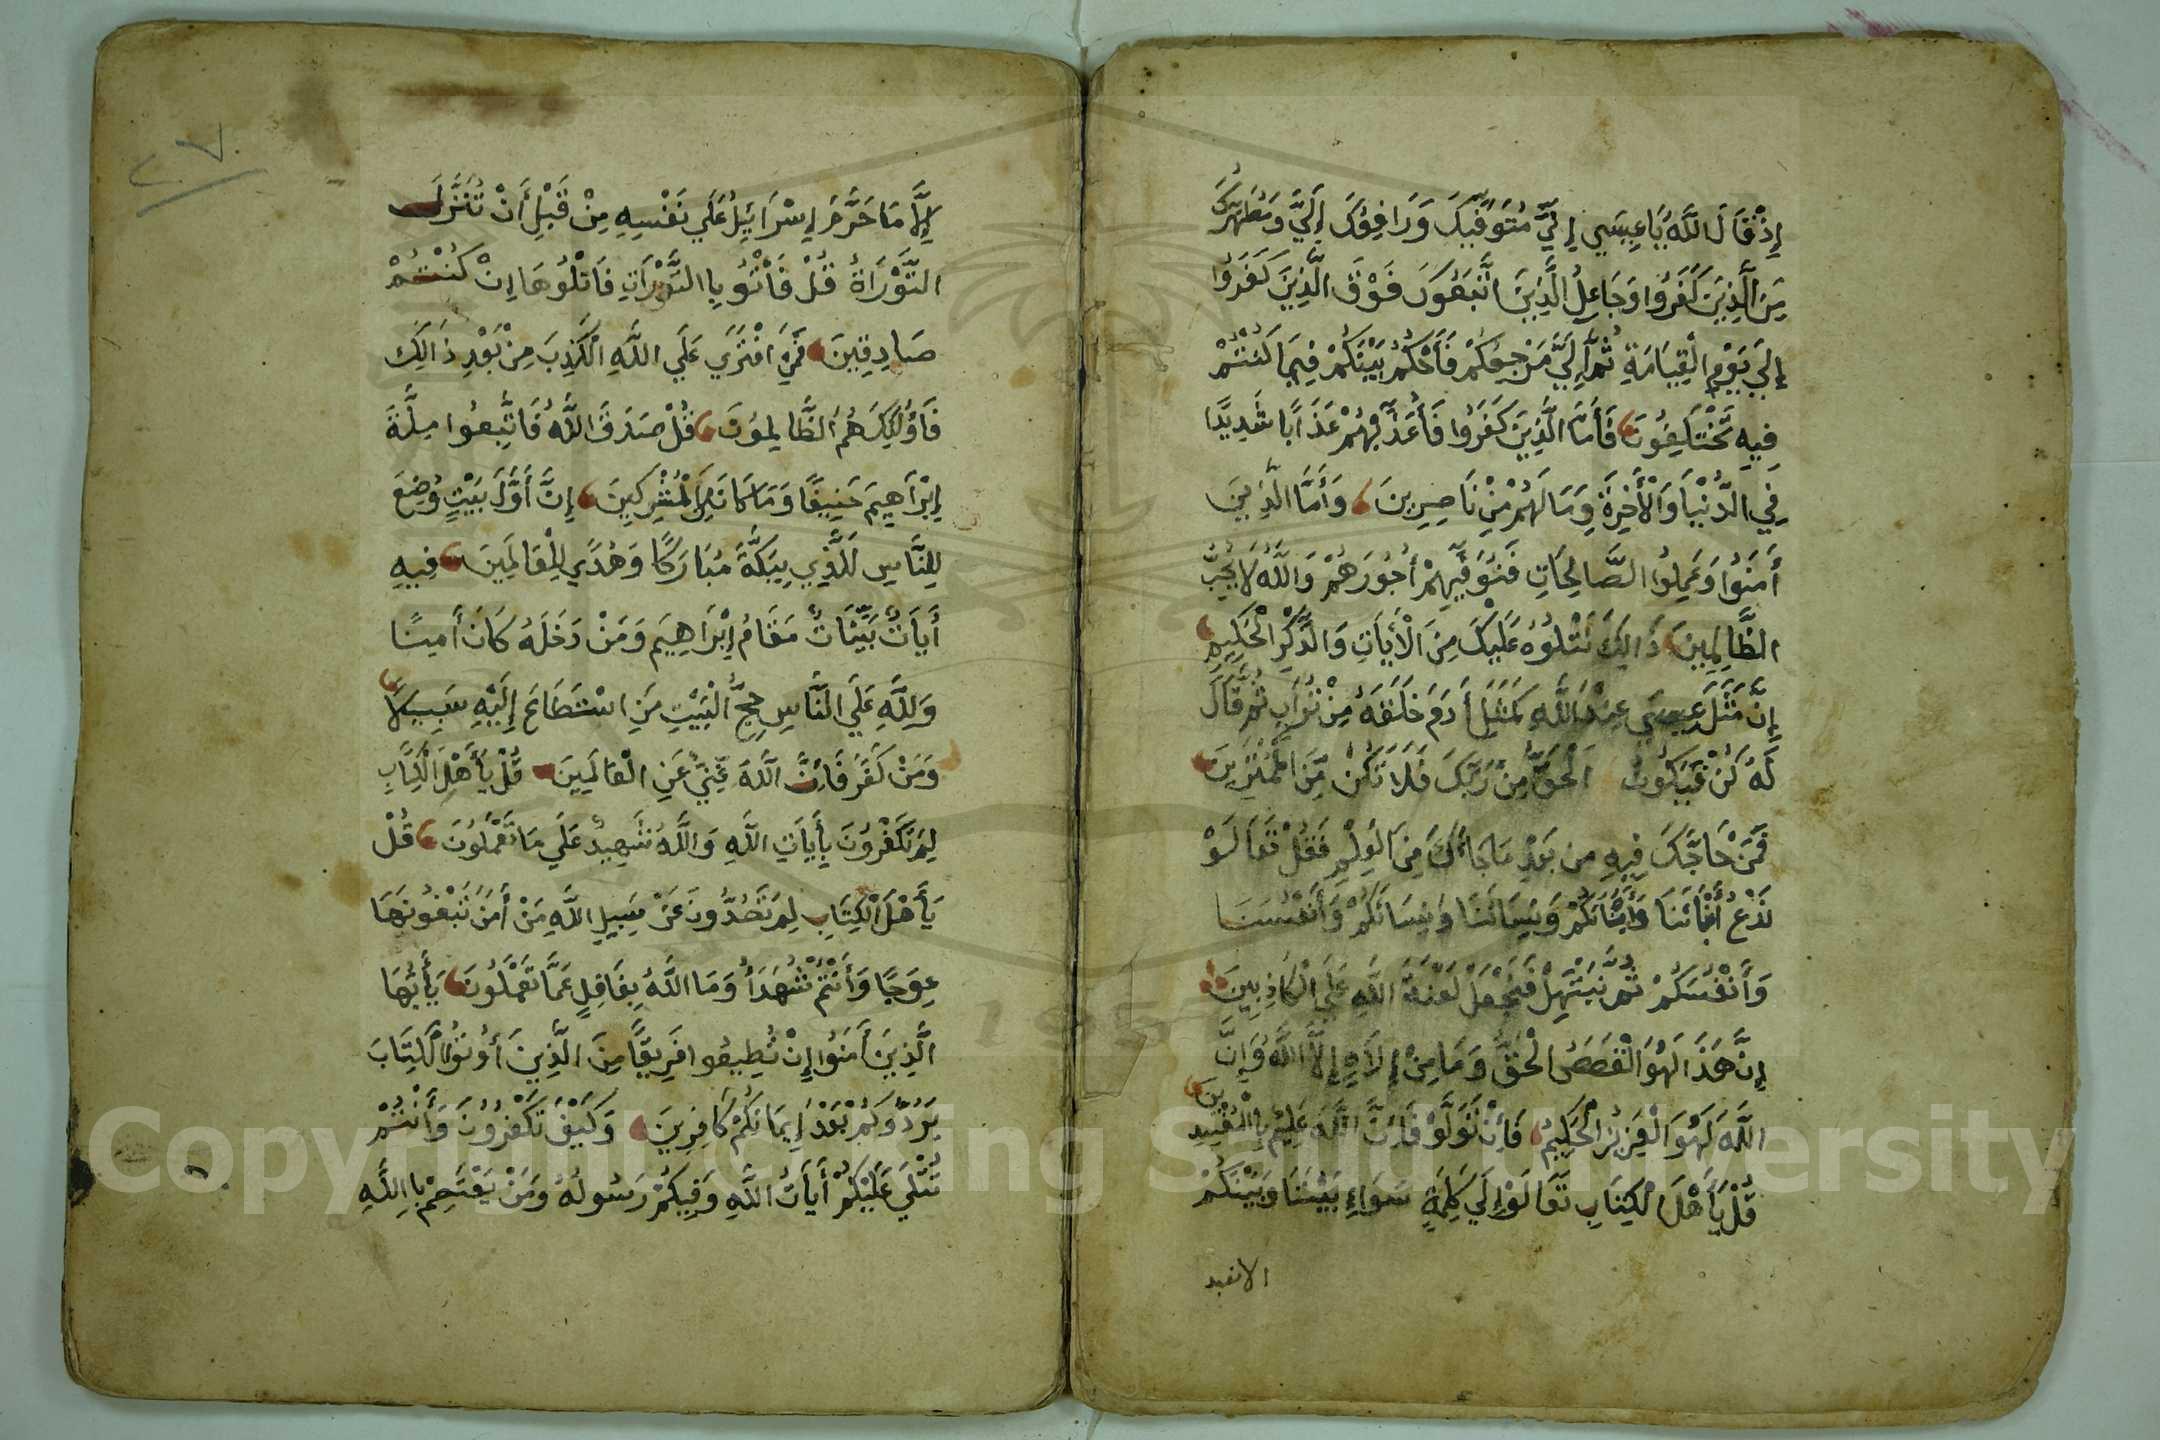 إِذْ قَالَ اللَّهُ يَا عِيسَي إِنِّي مُتَوَفِّيكَ وَرَافِعُكَ إِلَيَّ وَمُطَهِّرُكَ
مِنَ الَّذِينَ كَفَرُوا وَجَاعِلُ الَّذِينَ اتَّبَعُوكَ فَوْقَ الَّذِينَ كَفَرُوا
إِلَي يَوْمِ الْقِيَامَةِ ثُمَّ إِلَيَّ مَرْجِعُكُمْ فَأَحْكُمُ بَيْنَكُمْ فِيمَا كُنْتُمْ
فِيهِ تَخْتَلِفُونَ فَأَمَّا الَّذِينَ كَفَرُوا فَأُعَذِّبُهُمْ عَذَابًا شَدِيدًا
فِي الدُّنْيَا وَالْأَخِرَةِ وَمَا لَهُمْ مِنْ نَاصِرِينَ وَأَمَّا الَّذِينَ
أَمَنُوا وَعَمِلُوا الصَّالِحَاتِ فَنُوَفِّيهِمْ أُجُورَهُمْ وَاللَّهُ لَا يُحِبُّ
الظَّالِمِينَ ذَالِكَ نَتْلُوهُ عَلَيْكَ مِنَ الْأَيَاتِ وَالذِّكْرِ الْحَكِيمِ
إِنَّ مَثَلَ عِيسَي عِنْدَ اللَّهِ كَمَثَلِ أَدَمَ خَلَقَهُ مِنْ تُرَابٍ ثُمَّ قَالَ
لَهُ كُنْ فَيَكُونُ الْحَقُّ مِنْ رَبِّكَ فَلَا تَكُنْ مِنَ الْمُمْتَرِينَ
فَمَنْ حَاجَّكَ فِيهِ مِنْ بَعْدِ مَا جَاءَكَ مِنَ الْعِلْمِ فَقُلْ تَعَالَوْ
نَدْعُ أَبْنَائَنَا وَأَبْنَائَكُمْ وَنِسَائَنَا وَنِسَائَكُمْ وَأَنْفُسَنَا
وَأَنْفُسَكُمْ ثُمَّ نَبْتَهِلْ فَنَجْعَلْ لَعْنَةَ اللَّهِ عَلَي الْكَاذِبِينَ
إِنَّ هَذَا لَهُوَ الْقَصَصُ الْحَقُّ وَمَا مِنْ إِلَاهٍ إِلَّا اللَّهُ وَإِنَّ
اللَّهَ لَهُوَ الْعَزِيزُ الْحَكِيمُ فَإِنْ تَوَلَّوْ فَإِنَّ اللَّهَ عَلِيمٌ بِالْمُفْسِدِينَ
قُلْ يَأَهْلَ الْكِتَابِ تَعَالَوْ إِلَي كَلِمَةٍ سَوَاءٍ بَيْنَنَا وَبَيْنَكُمْ
الا نعبد
٢٧
إِلَّا مَا حَرَّمَ إِسْرَائِيلُ عَلَي نَفْسِهِ مِنْ قَبْلِ أَنْ تُنَزَّلَ
التَّوْرَاةُ قُلْ فَأْتُو بِالتَّوْرَاتِ فَاتْلُوهَا إِنْ كُنْتُمْ
صَادِقِينَ فَمَنِ افْتَرَي عَلَي اللَّهِ الْكَذِبَ مِنْ بَعْدِ ذَالِكَ
فَأُولَئِكَ هُمُ الظَّالِمُونَ قُلْ صَدَقَ اللَّهُ فَاتَّبِعُوا مِلَّةَ
إِبْرَاهِيمَ حَنِيفًا وَمَا كَانَ مِنَ الْمُشْرِكِينَ إِنَّ أَوَّلَ بَيْتٍ وُضِعَ
لِلنَّاسِ لَلَّذِي بِبَكَّةَ مُبَارَكًا وَهُدًي لِلْعَالَمِينَ فِيهِ
أَيَاتٌ بَيِّنَاتٌ مَقَامُ إِبْرَاهِيمَ وَمَنْ دَخَلَهُ كَانَ أَمِنًا
وَلِلَّهِ عَلَي النَّاسِ حِجُّ الْبَيْتِ مَنِ اسْتَطَاعَ إِلَيْهِ سَبِيلًا
وَمَنْ كَفَرَ فَإِنَّ اللَّهَ غَنِيٌّ عَنِ الْعَالَمِينَ قُلْ يَأَهْلَ الْكِتَابِ
لِمَ تَكْفُرُونَ بِأَيَاتِ اللَّهِ وَاللَّهُ شَهِيدٌ عَلَي مَا تَعْمَلُونَ قُلْ
يَأَهْلَ الْكِتَابِ لِمَ تَصُدُّونَ عَنْ سَبِيلِ اللَّهِ مَنْ أَمَنَ تَبْغُونَهَا
عِوَجًا وَأَنْتُمْ شُهَدَأُ وَمَا اللَّهُ بِغَافِلٍ عَمَّا تَعْمَلُونَ يَأَيُّهَا
الَّذِينَ أَمَنُوا إِنْ تُطِيعُوا فَرِيقًا مِنَ الَّذِينَ أُوتُوا الْكِتَابَ
يَرُدُّوكُمْ بَعْدَ إِيمَانِكُمْ كَافِرِينَ وَكَيْفَ تَكْفُرُونَ وَأَنْتُمْ
تُتْلَي عَلَيْكُمْ أَيَاتُ اللَّهِ وَفِيكُمْ رَسُولُهُ وَمَنْ يَعْتَصِمْ بِاللَّهِ
Copyright © King Saud University
1957